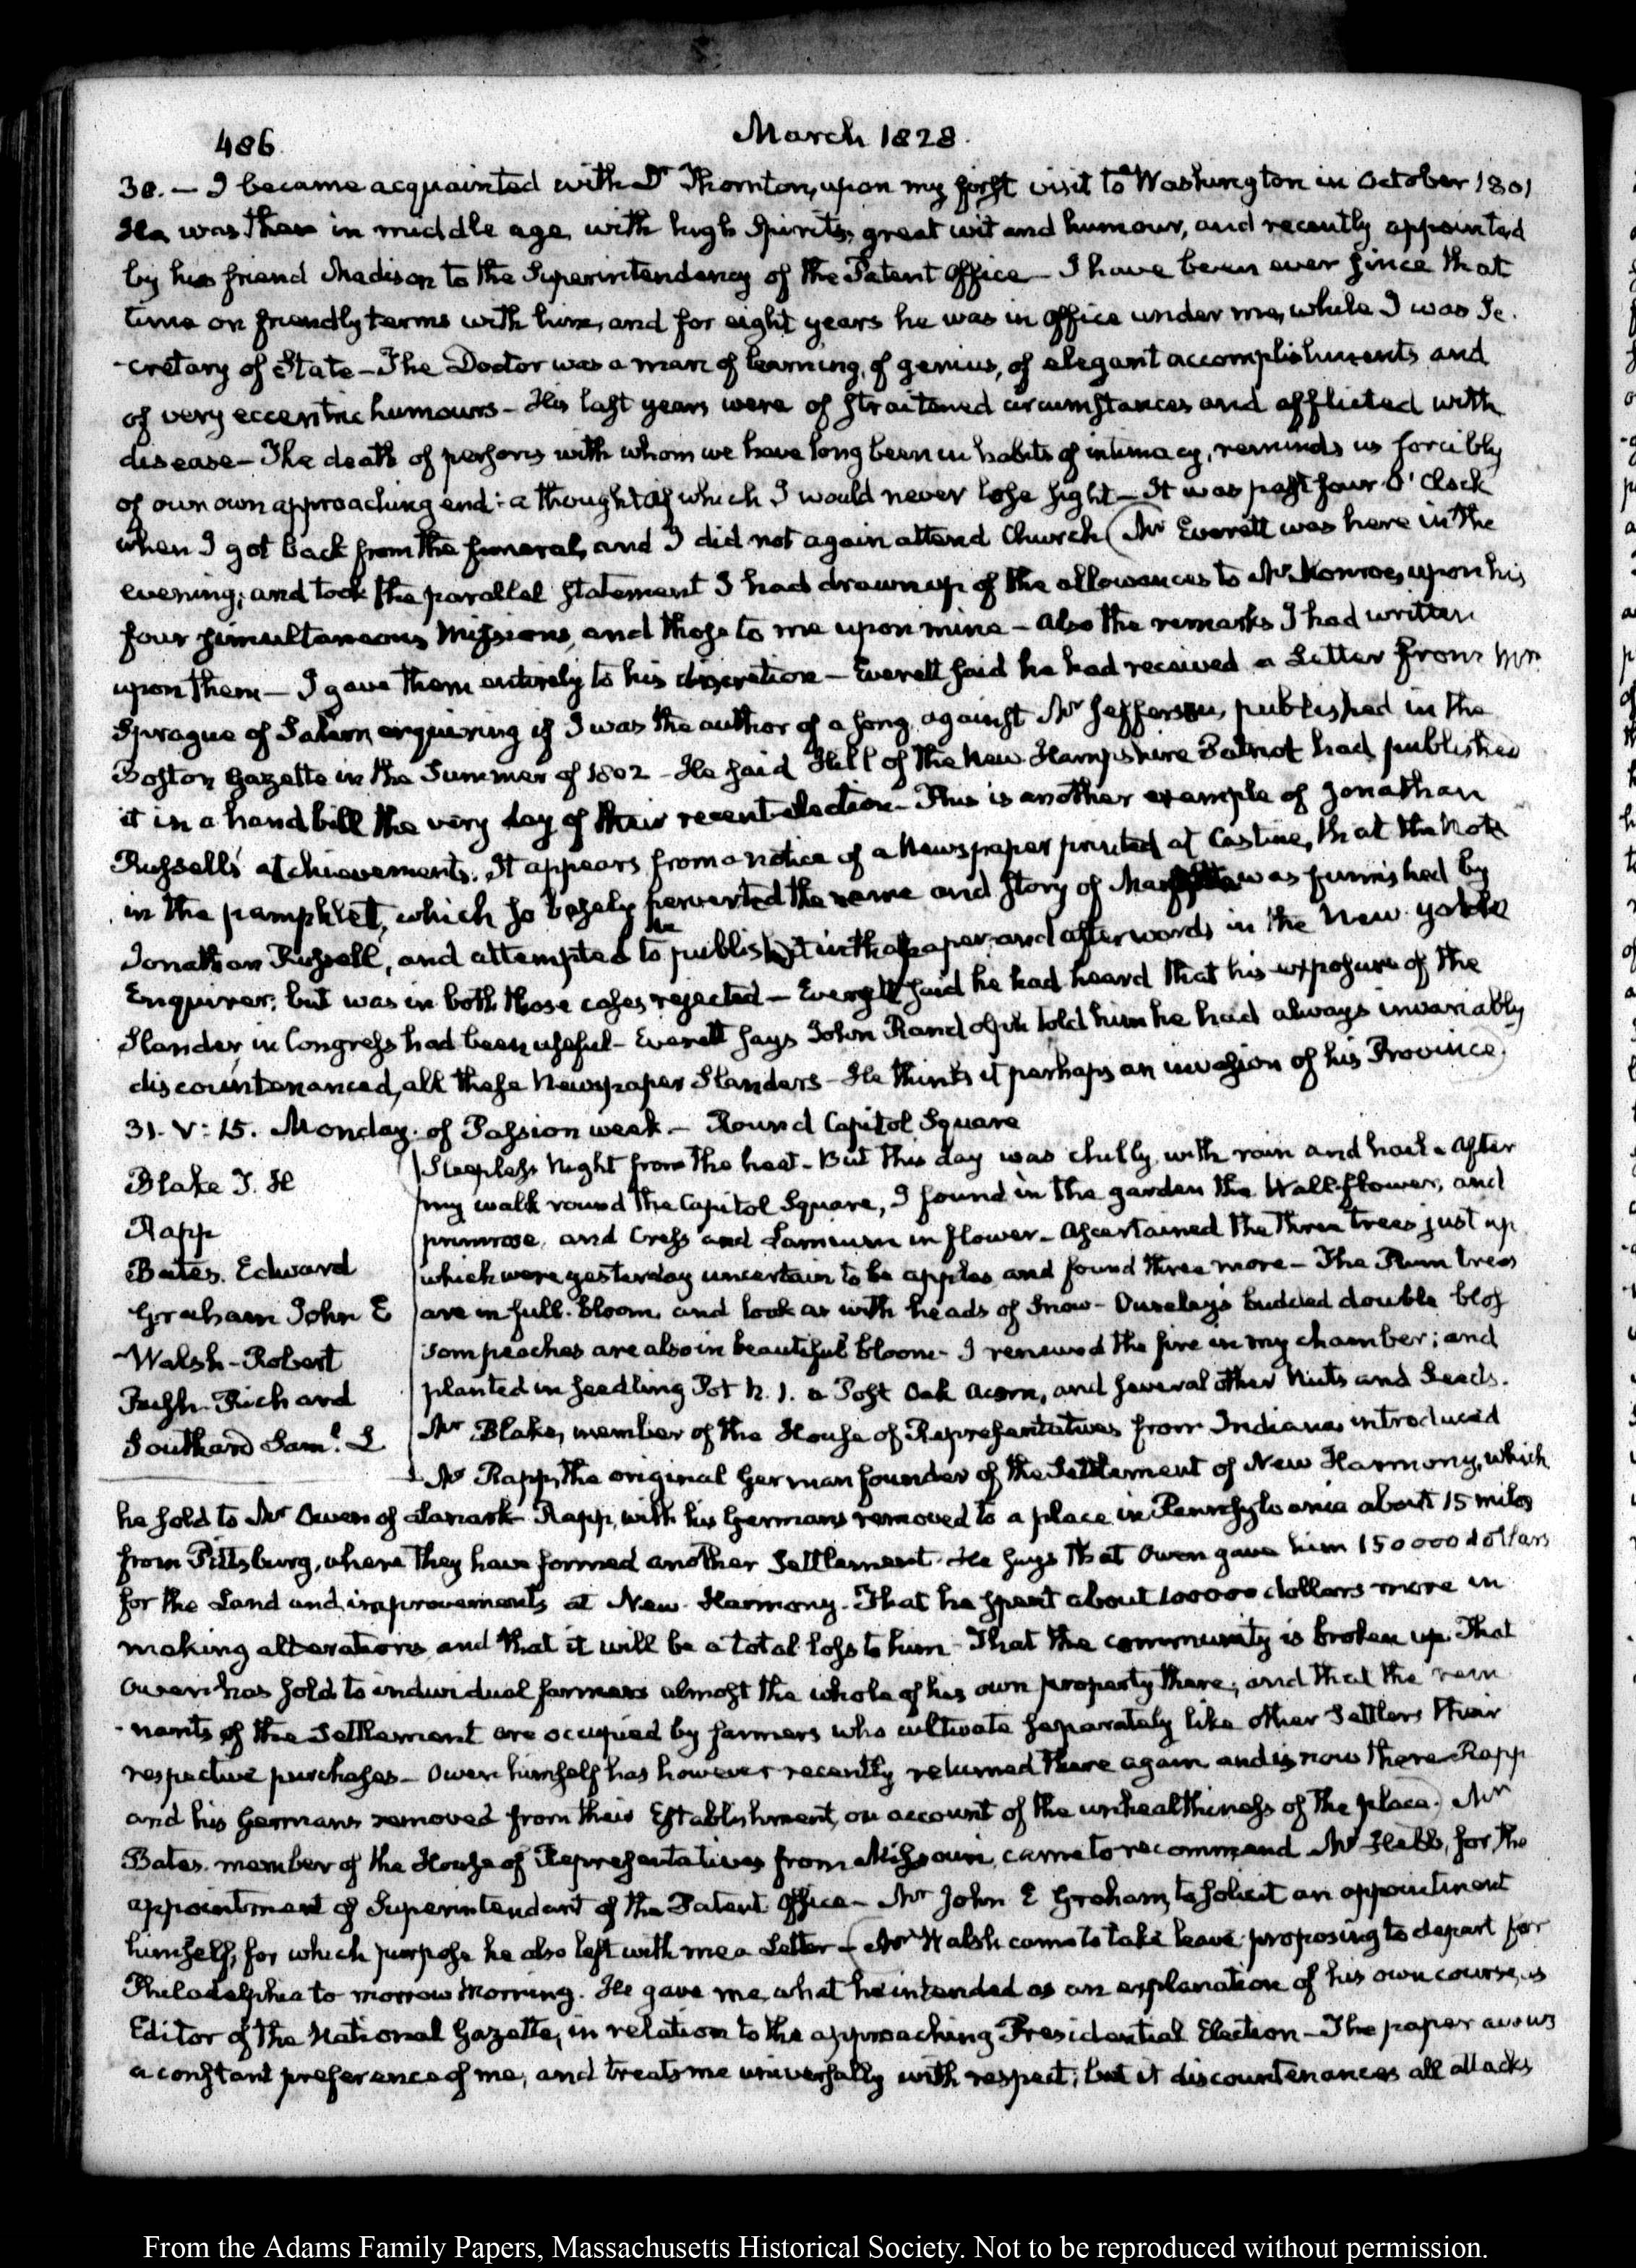 486.
March 1828.
30. — I became acquainted with Dr Thornton, upon my first visit to Washington in October 1801
He was then in middle age, with high Spirits, great wit and humour, and recently appointed
by his friend Madison to the Superintendency of the Patent Office — I have been ever since that
time on friendly terms with him, and for eight years he was in Office under me, while I was Se-
-cretary of State — The Doctor was a man of learning, of genius, of elegant accomplishments and
of very eccentric humours — His last years were of straitened circumstances and afflicted with
disease — The death of persons with whom we have long been in habits of intimacy, reminds us forcibly
of our own approaching end: a thought of which I would never lose sight — It was past four O'Clock
when I got back from the funeral, and I did not again attend Church (Mr Everett was here in the
evening; and took the parallel statement I had drawn up of the allowances to Mr Monroe, upon his
four simultaneous Missions, and those to me upon mine — also the remarks I had written
upon them — I gave them entirely to his discretion — Everett said he had received a Letter from Mr
Sprague of Salem, enquiring if I was the author of a song against Mr Jefferson, published in the
Boston Gazette in the Summer of 1802 — He said Hill of the New Hampshire Patriot had published
it in a hand bill the very day of their recent election — This is another example of Jonathan
Russell's atchievements. It appears from a notice of a Newspaper printed at Castine, that the Note
in the pamphlet, which so basely perverted the name and story of was furnished by
Jonathan Russell, and attempted to be publish it in that paper, and afterwards in the New York
Enquirer; but was in both those cases rejected — Everett said he had heard that his exposure of the
Slander, in Congress had been useful — Everett says John Randolph told him he had always invariably
discountenanced, all these Newspaper Slanders — He thinks it perhaps an invasion of his Province.)
31. V: 15. Monday. of Passion week — Round Capitol Square
Blake T. H
Rapp
Bates. Edward
Graham John E
Walsh — Robert
Rush. Richard
Southard Saml. L
(Sleepless Night from the heat — But this day was chilly, with rain and hail — After
my walk round the Capitol Square, I found in the garden the Wall-flower, and
primrose, and Cress and Lamium in flower — Ascertained the three trees just up
which were yesterday uncertain to be apples and found three more — The Plum trees
are in full-bloom, and look as with heads of Snow — budded double blos
som peaches are also in beautiful bloom — I renewed the fire in my chamber; and
planted in seedling Pot N. 1. a Post Oak Acorn, and several other Nuts and Seeds.
Mr Blake, member of the House of Representatives from Indiana, introduced
Mr Rapp, the original German founder of the Settlement of New Harmony, which
he sold to Mr Owen of Lanark — Rapp, with his Germans removed to a place in Pennsylvania about 15 miles
from Pittsburg, where they have formed another Settlement. He says that Owen gave him 150000 dollars
for the Land and improvements at New-Harmony. That he spent about 100000 dollars more in
making alterations and that it will be a total loss to him — That the community is broken up. That
Owen has sold to individual farmers almost the whole of his own property there; and that the rem
-nants of the Settlement are occupied by farmers who cultivate separately like other Settlers their
respective purchases — Owen himself has however recently returned there again and is now there — Rapp
and his Germans removed from their Establishment, on account of the unhealthiness of the place.) Mr
Bates. member of the House of Representatives from Missouri, came to recommend Mr for the
appointment of Superintendant of the Patent Office — Mr John E Graham, to solicit an appointment
himself, for which purpose he also left with me a Letter — (Mr Walsh came to take leave, proposing to depart for
Philadelphia to morrow Morning. He gave me, what he intended as an explanation of his own course, as
Editor of the National Gazette, in relation to the approaching Presidential Election — The paper avows
a constant preference of me, and treats me universally with respect; but it discountenances all attacks
From the Adams Family Papers, Massachusetts Historical Society. Not to be reproduced without permission.